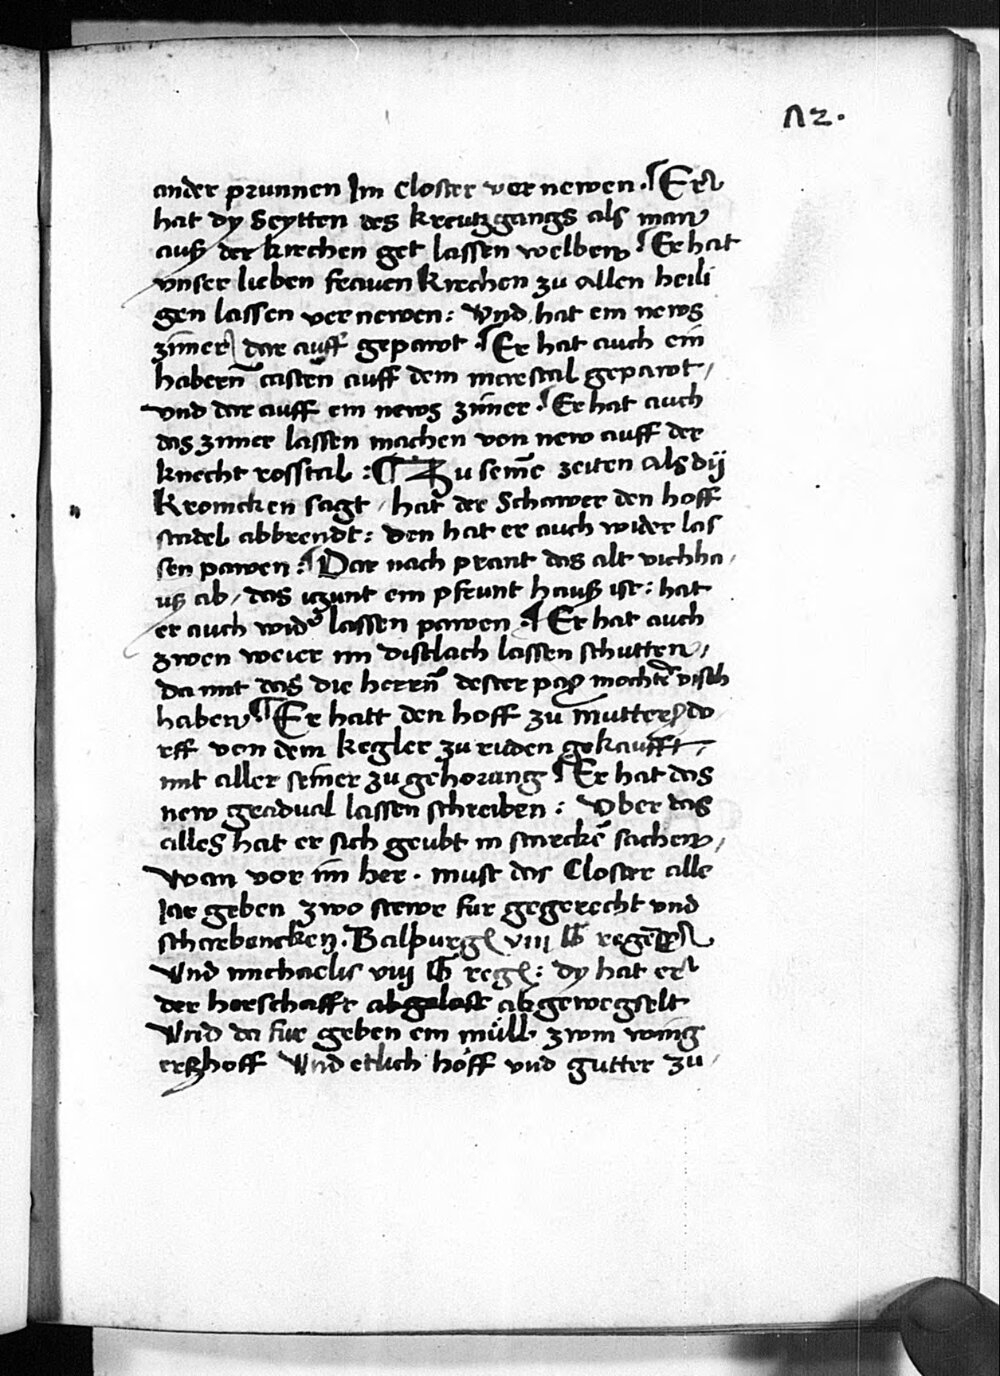 72.
ander prunnen Im closter vernewen. ¶ Er
hat dy Seytten des kreutzgangs als man
auß der kirchen get lassen welben ¶ Er hat
vnser lieben frauen kirchen zu allen heili
gen lassen vernewen: Vnd hat ein news
zim̄er dar auff gepawt ¶ Er hat auch ein
habern̄ casten auff dem marstal gepawt,
vnd dar auff ein news zim̄er. ¶ Er hat auch
das zimer lassen machen von new auff der
knecht rosstal: ¶ Zu sein̄e zeiten als dij
Kronicken sagt, hat der Schawer den hoff
stadel abbrendt: den hat er auch wider las
sen pawen: ¶ Dar nach prant das alt vichha,
uß ab, das iczunt ein pfrunt hauß ist: hat
er auch wid' lassen pawen ¶ Er hat auch
zwen weier im distlach lassen schutten,
da mit das die herrn̄ dester paß mochtē visch
haben ¶ Er hatt den hoff zu mutters do
rff von dem kegler zu riden gekaufft,
mit aller seiner zu gehorung ¶ Er hat das
new gradual lassen schreiben: Vber das
alles hat er sich geubt in starckē sachen,
wan vor im her. must das Closter alle
Jar geben zwo stewr fur gegerecht vnd
scharbencken. Balpurg viii lb
Vnd michaelis viij lb reg: dy hat er
der herschafft abgelost abgewegselt
Vnd da fur geben ein müll zwm
hoff Vnd etlich höff vnd gutter zu,